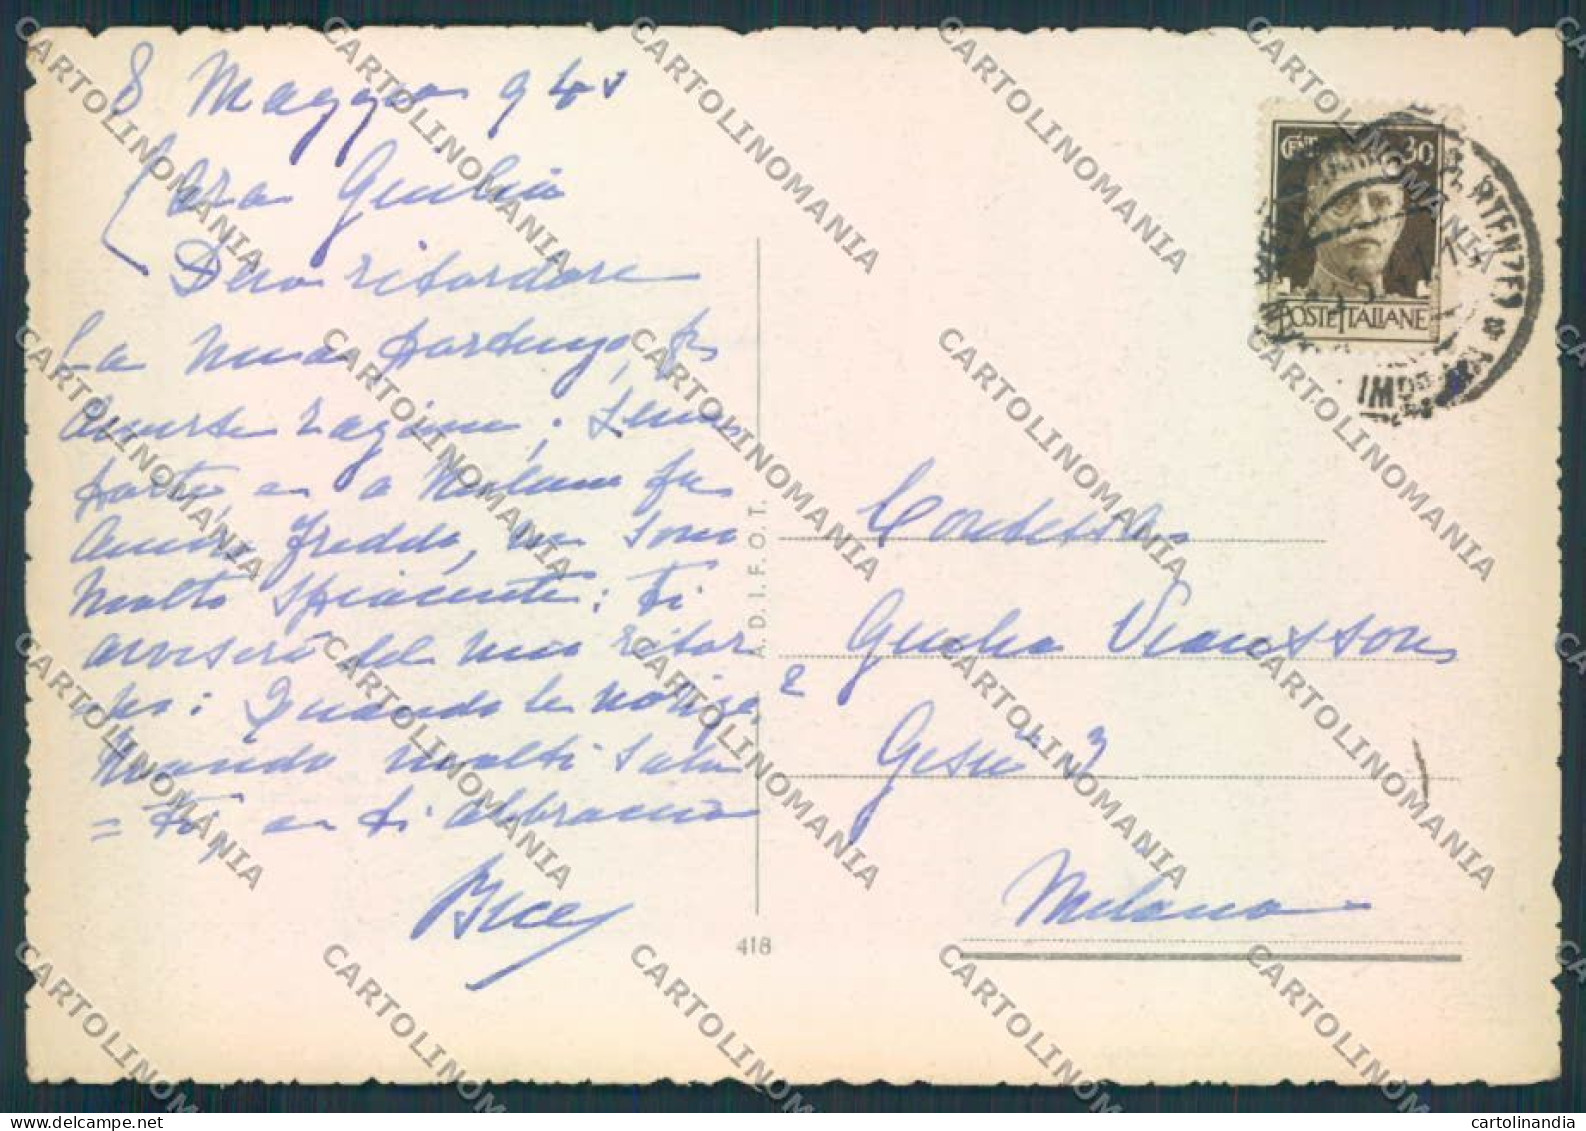 8 Maggio 940
Cara Giulia
Devo ritardare
la mia partenza, per
diverse ragioni;
parti, e a Milano fu
ancora freddo, ne sono
molto spiacente: ti
avviserò del mio ritor
no: Quando le notizie
Mando molti salu
= ti, e ti abbraccio
Bice
A. D. I. F. O. T.
418
CENT. 30
POSTE ITALIANE
Contessa
Giulia
Gesù 7
Milano
CARTOLINOMANIA
cartolinandia